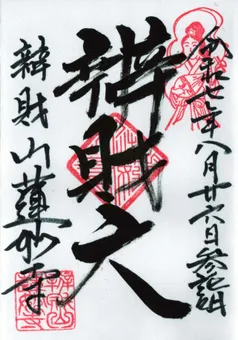 令和七年八月廿六日参詣
辨財天
辨財山蓮妙寺